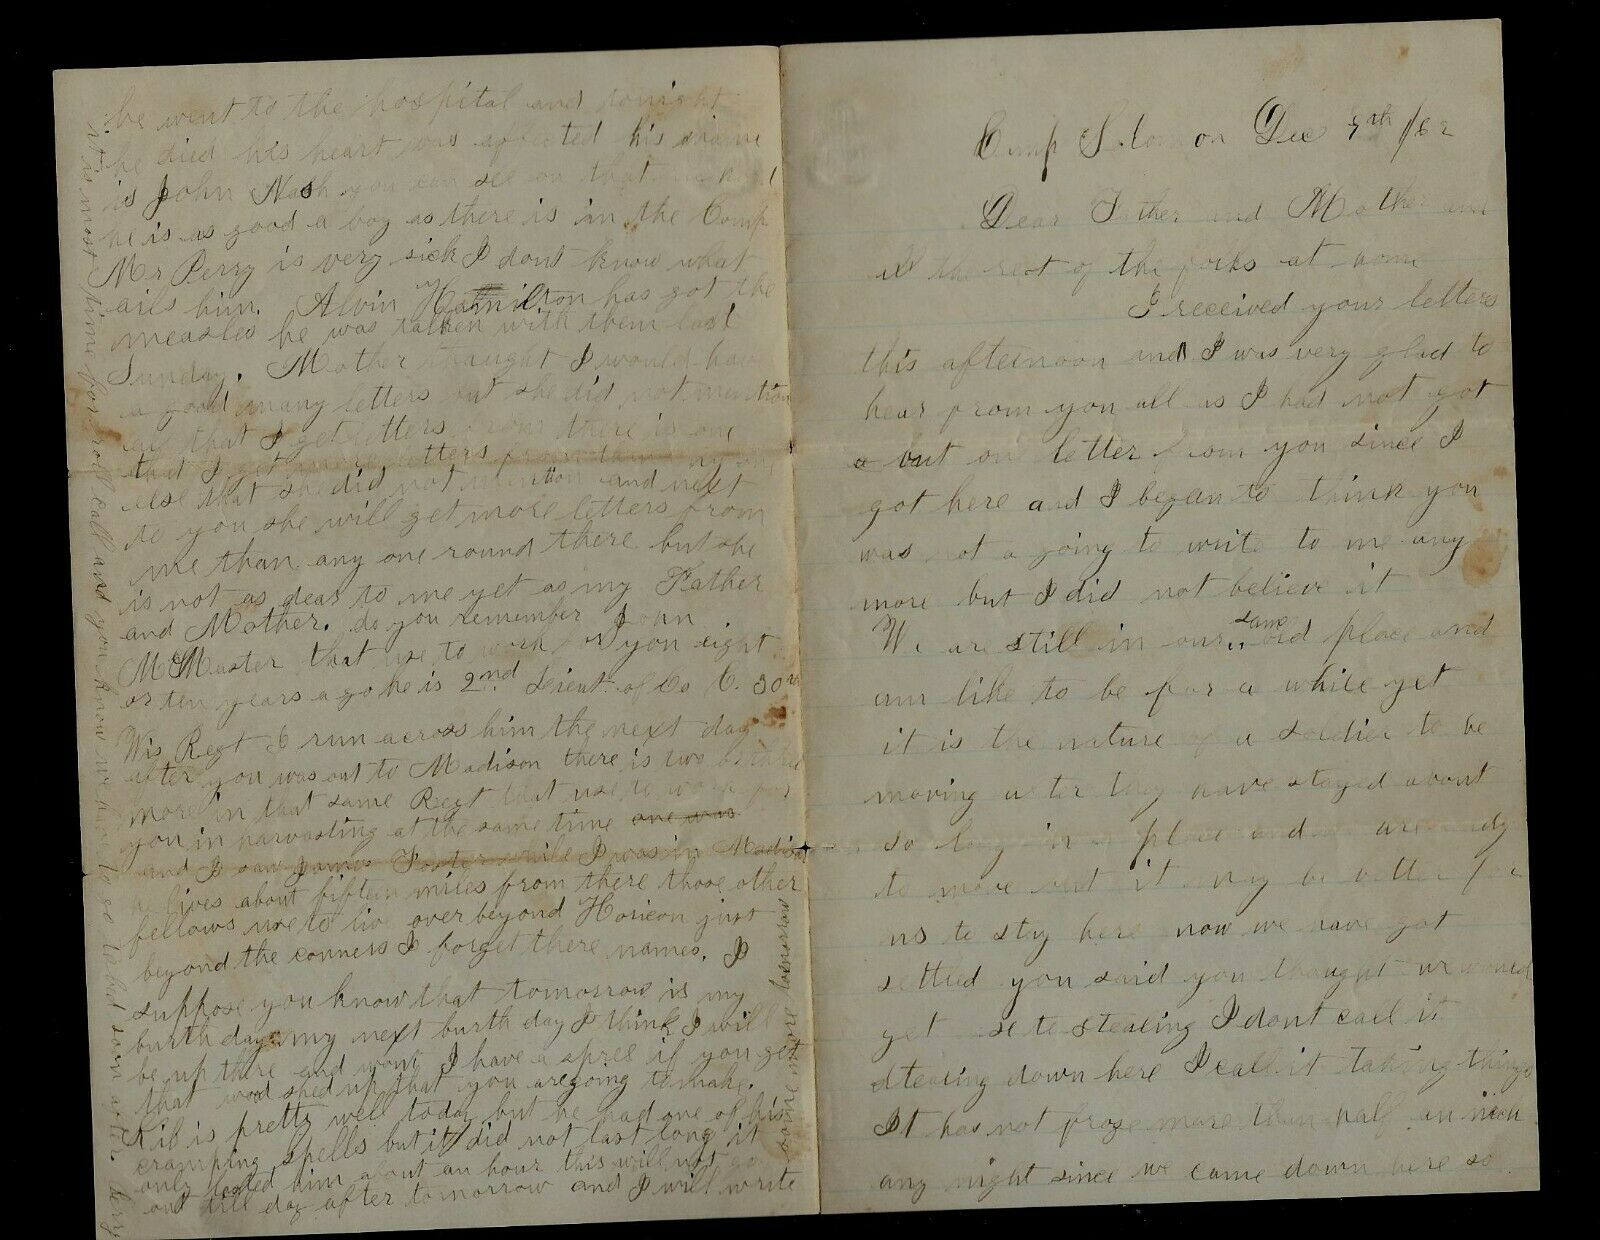 Camp Solomon Dec 9th /62
Dear Father and Mother and
all the rest of the folks at home
I received your letters
this afternoon and I was very glad to
hear from you all as I had not got
a but one letter from you since I
got here and I began to think you
was not a going to write to me any
more but I did not believe it
We are still in our same old place and
am like to be for a while yet
it is the nature of a soldier to be
moving after they have stayed about
so long in a place and are ready
to move but it may be better for
us to sty here now we have got
settled you said you thought we would
get to stealing I dont call it
stealing down here I call it taking things
It has not froze more than half an inch
any night since we came down here so
he went to the hospital and tonight
he died his heart was affected his name
is John Nash you can see on that
he is as good a boy as there is in the Comp
Mr Perry is very sick I dont know what
ails him. Alvin Hamilton has got the
measles he was taken with them last
Sunday. Mother thaught I would have
a good many letters but she did not mention
all that I get letters from there is one
that I get more letters from than any one
else that she did not mention and next
to you she will get more letters from
me than any one round there but she
is not as dear to me yet as my Father
and Mother. do you remember John
McMaster that use to work for you eight
or ten years ago he is 2nd Lieut. of Co C. 30th
Wis Regt I run across him the next day
after you was out to Madison there is two or three
more in that same Regt that use to work for
you in harvesting at the same time one was
and I saw James Foster while I was in Madison
he lives about fifteen miles from there those other
fellows use to live over beyond Horicon just
beyond the corners I forget there names. I
suppose you know that tomorrow is my
burth day my next burth day I think I will
be up there and wont I have a spree if you get
that wood shed up that you are going to make.
is pretty well today but he had one of his
cramping spells but it did not last long it
only lasted him about an hour this will not go
out till day after tomorrow and I will write
some more tomorrow
it is most time for roll call and you know we have to go to bed soon after.